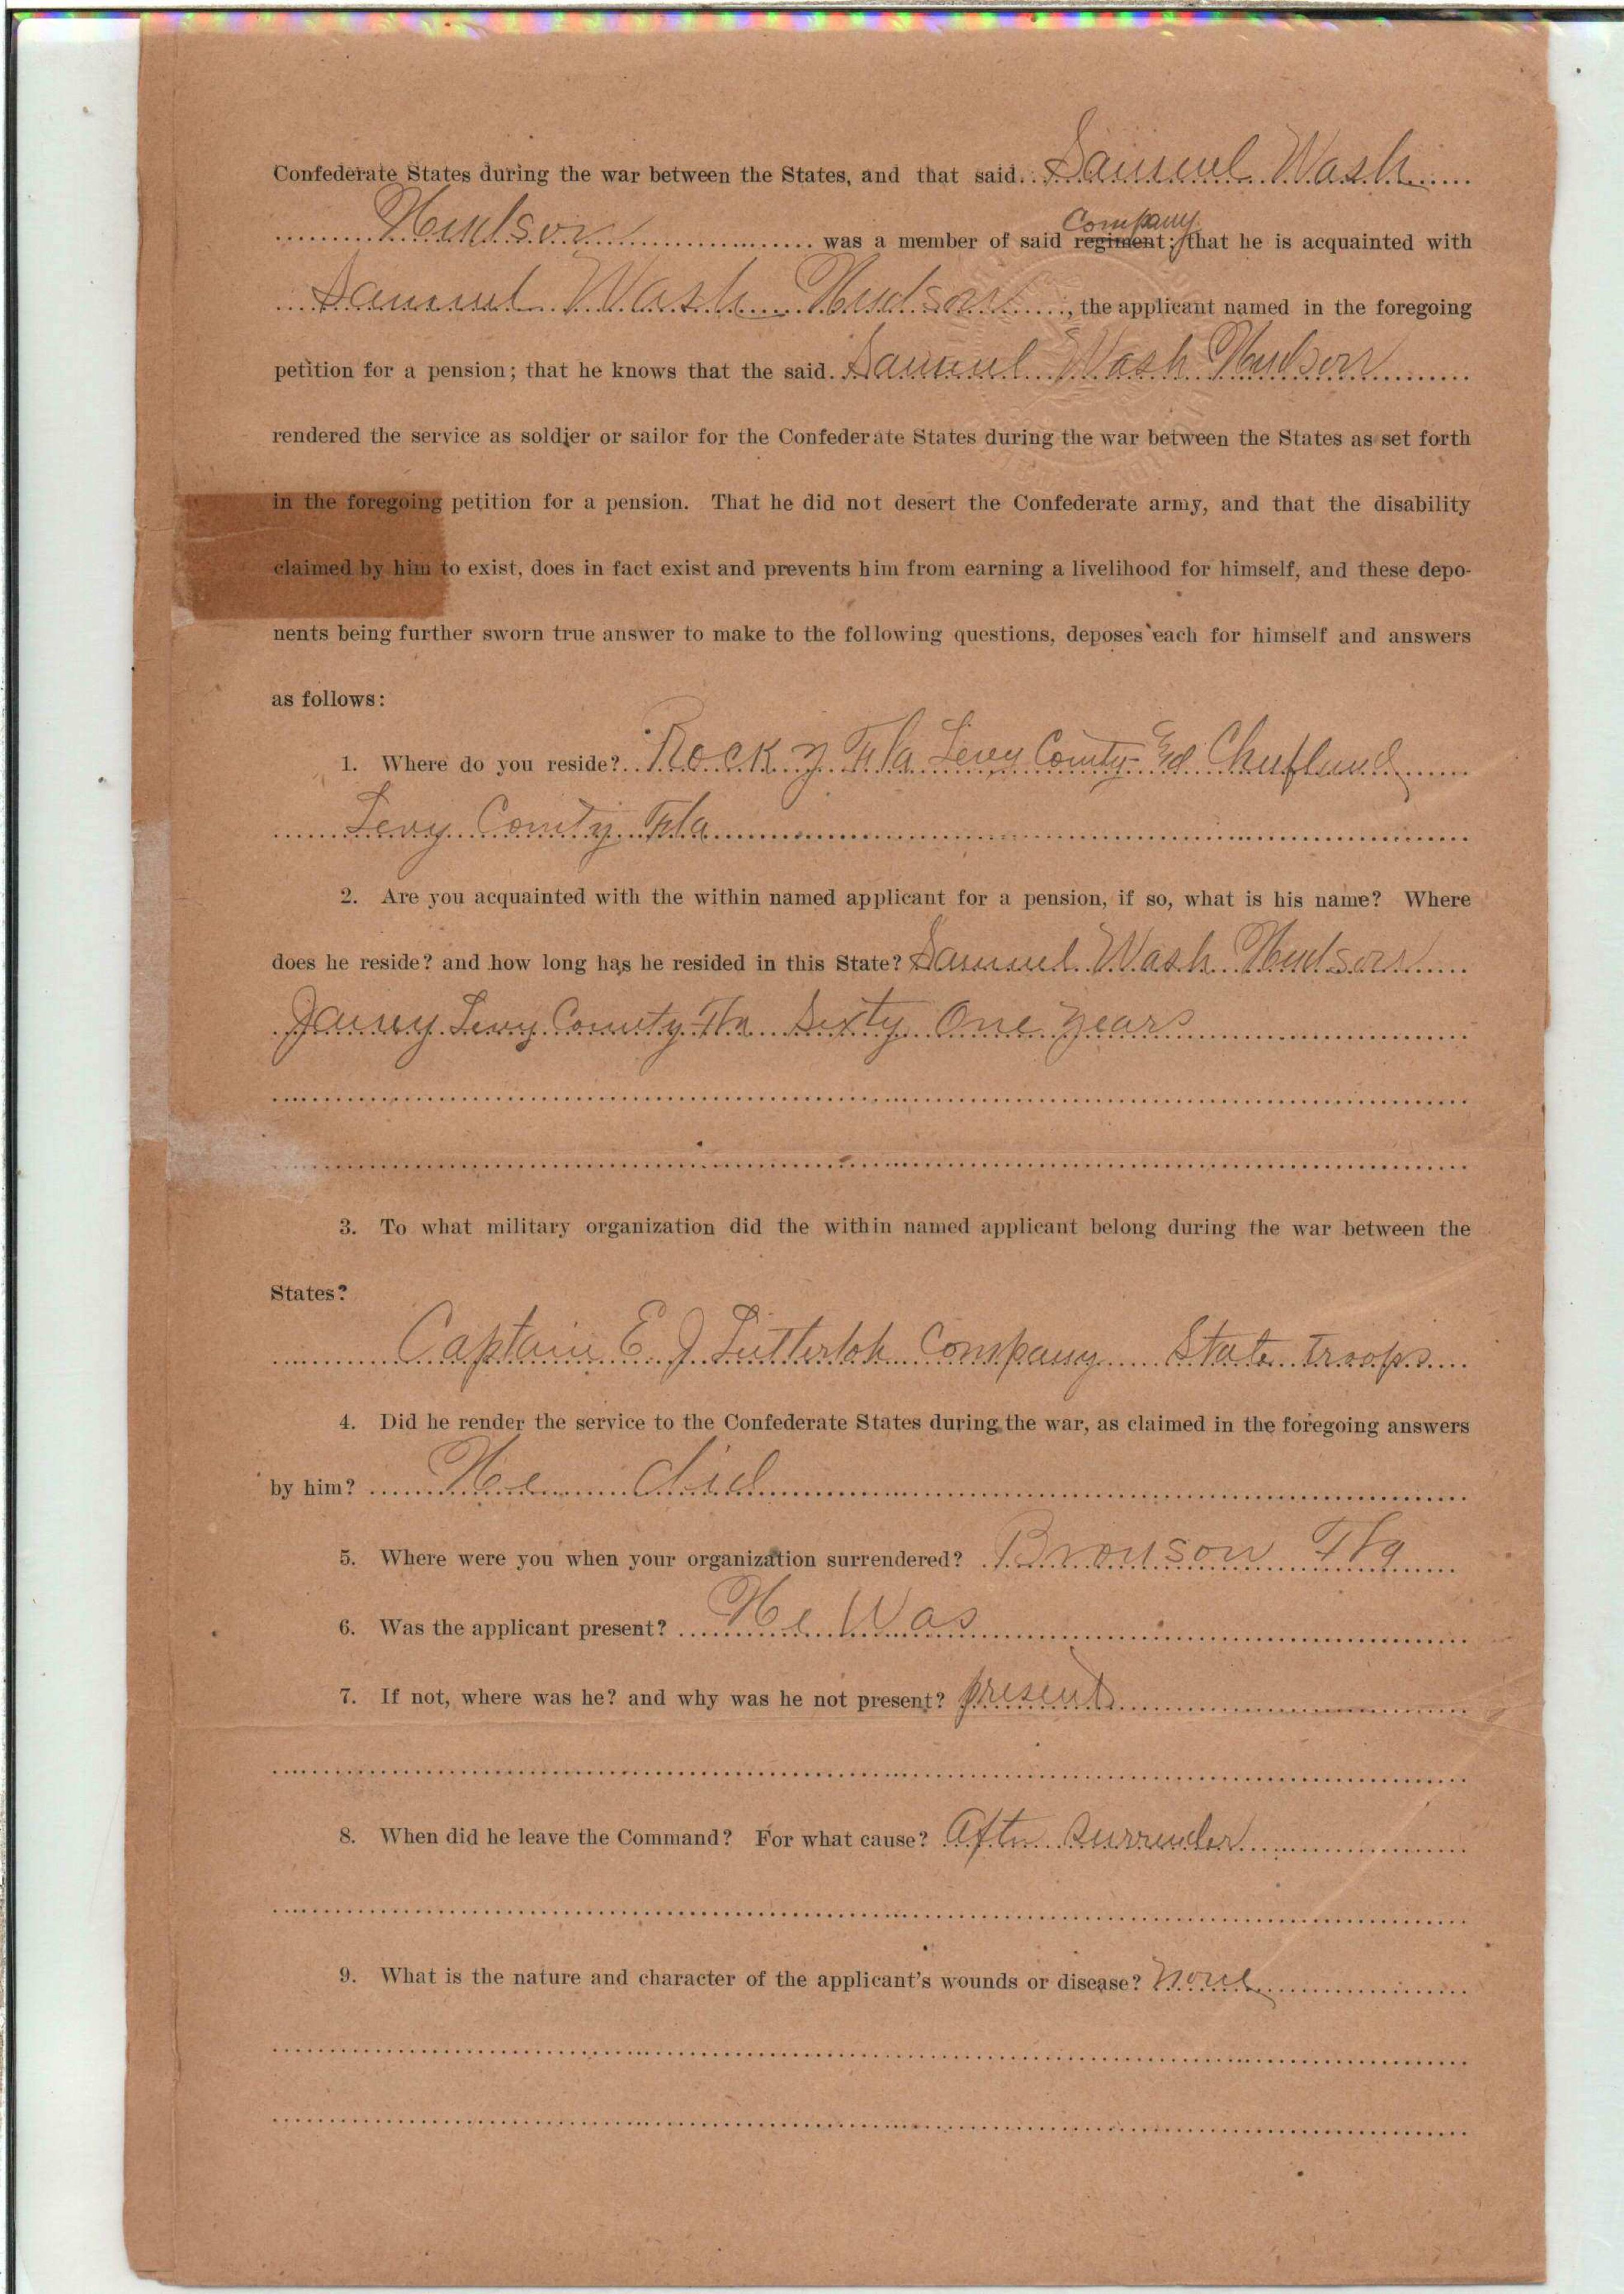 Confederate States during the war between the States, and that said Samuel Wash
Hudson was a member of said regiment; Company that he is acquainted with
Samuel Wash Hudson, the applicant named in the foregoing
petition for a pension; that he knows that the said Samuel Wash Hudson
rendered the service as soldier or sailor for the Confederate States during the war between the States as set forth
in the foregoing petition for a pension. That he did not desert the Confederate army, and that the disability
claimed by him to exist, does in fact exist and prevents him from earning a livelihood for himself, and these depo-
nents being further sworn true answer to make to the following questions, deposes each for himself and answers
as follows:
1. Where do you reside? Rocky Fla Levy County Chiefland
Levy County Fla
2. Are you acquainted with the within named applicant for a pension, if so, what is his name? Where
does he reside? and how long has he resided in this State? Samuel Wash Hudson
Levy County Fla Sixty One years
3. To what military organization did the within named applicant belong during the war between the
States?
Captain E. J. Lutterloh Company State Troops
4. Did he render the service to the Confederate States during the war, as claimed in the foregoing answers
by him? He did
5. Where were you when your organization surrendered? Bronson Fla
6. Was the applicant present? He Was
7. If not, where was he? and why was he not present? present
8. When did he leave the Command? For what cause? After Surrender
9. What is the nature and character of the applicant's wounds or disease? None